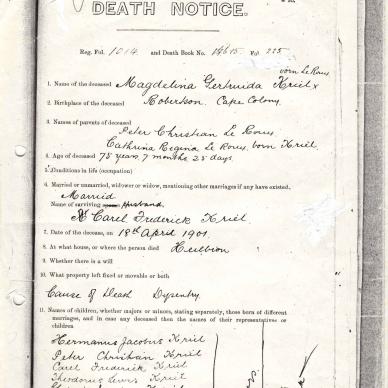 DEATH NOTICE.
Reg. Fol. 1014 and Death Book No. Fol. 225
born Le Roux
1. Name of the deceased Magdelina Gertruida Kriel
2. Birthplace of the deceased Robertson. Cape Colony.
3. Names of parents of deceased
Peter Christian Le Roux
Cathrina Regina Le Roux born Kriel
4. Age of deceased 75 years 7 months 25 days
5. Conditions in life (occupation)
6. Married or unmarried, widower or widow, mentioning other marriages if any have existed.
Married
Name of surviving Husband
Carel Frederick Kriel
7. Date of the decease, on 18th April 1901
8. At what house, or where the person died Heilbron
9. Whether there is a will
10. What property left fixed or movable or both
Cause of Death Dysentry
11. Names of children, whether majors or minors, stating separately, those born of different
marriages, and in any case deceased then the names of their representatives or
children
Hermanus Jacobus Kriel
Peter Christian Kriel
Carel Frederick Kriel
Theodorus Lewis Kriel